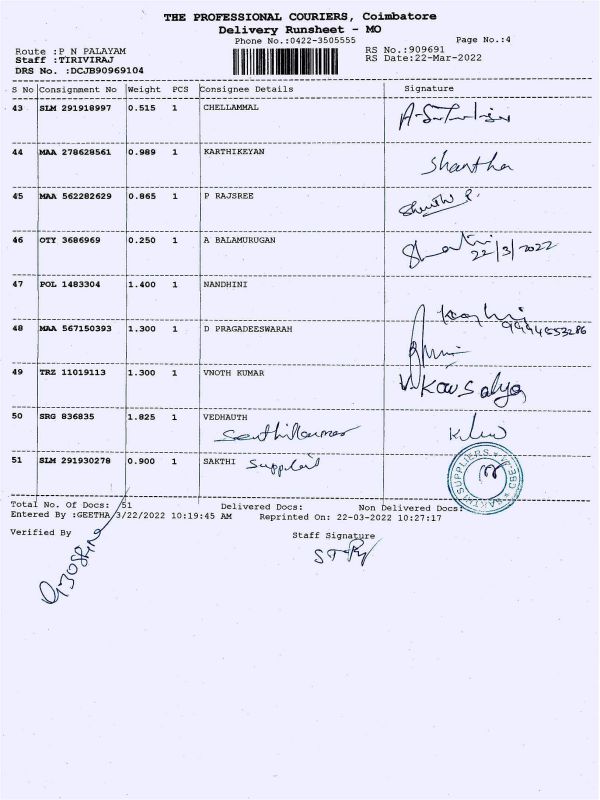 THE PROFESSIONAL COURIERS, Coimbatore
Delivery Runsheet - MO
Phone No.:0422-3505555 Page No.:4
Route :P N PALAYAM RS No.:909691
Staff :TIRIVIRAJ RS Date:22-Mar-2022
DRS No. :DCJB90969104
S No Consignment No Weight PCS Consignee Details Signature
43 SLM 291918997 0.515 1 CHELLAMMAL
44 MAA 278628561 0.989 1 KARTHIKEYAN Shantha
45 MAA 562282629 0.865 1 P RAJSREE
46 OTY 3686969 0.250 1 A BALAMURUGAN
22/3/2022
47 POL 1483304 1.400 1 NANDHINI
9994553286
48 MAA 567150393 1.300 1 D PRAGADEESWARAH
49 TRZ 11019113 1.300 1 VNOTH KUMAR Kowsalya
50 SRG 836835 1.825 1 VEDHAUTH
Senthilkumar
51 SLM 291930278 0.900 1 SAKTHI
SAKTHI SUPPLIERS
Total No. Of Docs: 51 Delivered Docs: Non Delivered Docs:
Entered By :GEETHA 3/22/2022 10:19:45 AM Reprinted On: 22-03-2022 10:27:17
Verified By Staff Signature